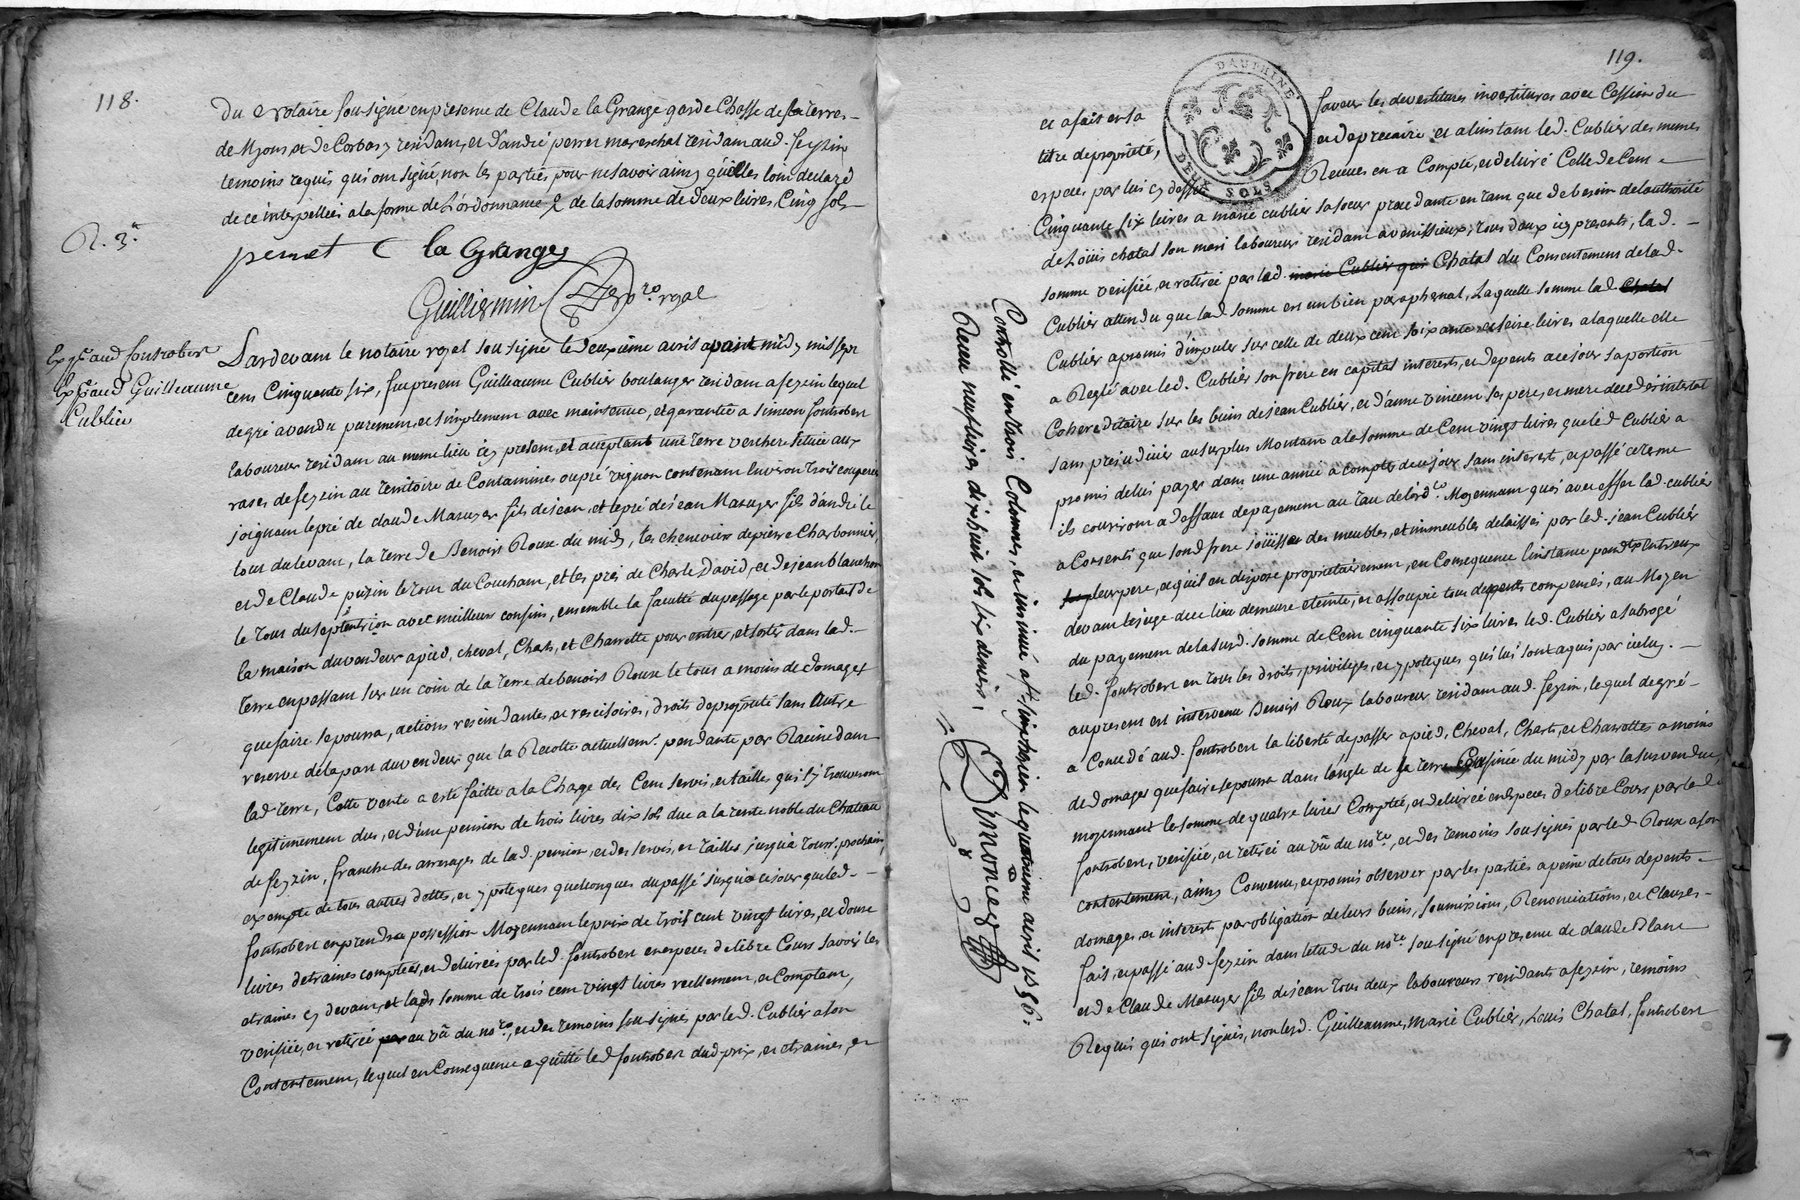 118.
du notaire sousigné en presence de Claude la Grange garde Chasse des terres
de Mions et de Corbas y residant, et d'andré perret mareschal residant aud. feyzin
temoins requis qui ont signé, non les parties pour ne savoir ainsy qu'elles l'ont declaré
de ce interpellées a la forme de L'ordonnance & de la somme de deux livres Cinq sols
R. 3.e
perret la Grange
Guilliermin no.re royal
Exp.é aud fontrobert
Exp.é aud Guilleaume
Cublier
Pardevant le notaire royal sousigné le deuxieme avris avant midy mil sept
cent Cinquante six, fut present Guilleaume Cublier boulanger residant a fezein lequel
de gré a vendu purement, et simplement avec maintenue, et garantie a simeon fontrobert
laboureur residant au meme lieu icy present, et acceptant une terre verchere scituée aux
rases de fezein au territoire de Contamines ou pré vignon contenant environ trois couperées
joignant le pré de claude Mazuyer fils de jean, et le pré de jean Mazuyer fils d'andré le
tout du levant, la terre de Benoist Roux du midy, les chenevier de pierre Charbonnier,
et de Claude puzin le tout du Couchant, et les prés de Charle David, et de jean blanchon
le tout du septentrion avec meilleurs confins, ensemble la faculté du passage par le portail de
la maison du vendeur a pied, cheval, Chars, et Charrette pour entrer, et sortir dans lad.
terre en passant sur un coin de la terre de benoist Roux le tous a moins de domages
que faire se pourra, actions rescindantes, et rescisoires, droits de propriété sans Autre
reserve de la part du vendeur que la Recolte actuellem.t pendante par Racine dans
lad terre, Cette vente a esté faitte a la Charge des Cens servis, et taille qui s'y trouveront
legitimement dus, et d'une pension de trois livres dix sols due a la rente noble du Chateau
de feyzin, franche des arrerages de lad. pension, et des servis, et tailles jusqu'a Touss.t prochain
exempte de tous autres dettes, et ypoteques quelconques du passé jusqu'a ce jour que led.
fontrobert en prendra possession Moyennant le prix de trois cent vingt livres, et douse
livres d'etraines comptées, et delivrées par led. fontrobert en especes de libre Cours savoir les
etraines cy devant, et lad. somme de trois cent vingt livres reellement, et Comptant,
verifiée, et retirée au vû du no.re, et des temoins sousignés par led. Cublier a son
Contentement, lequel en Consequence a quitté led fontrobert dud prix, et etraines, et
119.
DAUPHINE
DEUX SOLS
et a fait en sa faveur les devestitures investitures avec Cession du
titre de propriété, et de precaire et a l'instant led. Cublier des memes
especes par lui cy dessus Receues en a Compté, et delivré Celle de Cent
Cinquante six livres a marie cublier sa soeur procedante en tant que de besoin de l'authorité
de Loüis chatal son mari laboureur residant a venissieux, tous deux icy presents, lad.
somme verifiée, et retirée par lad. marie Cublier qui Chatal du Consentement de lad.
Cublier attendu que lad somme est un bien paraphernal, Laquelle somme lad. Chatal
Cublier a promis d'imputer sur celle de deux cent soixante et seize livres a laquelle elle
a Reglé avec led. Cublier son frere en capital interests, et depents a ce jour sa portion
Cohereditaire sur les biens de jean Cublier, et d'anne vincent ses pere, et mere decedés intestat
sans prejudicier au surplus Montant a la somme de Cent vingt livres que led Cublier a
promis de lui payer dans une année a compter de ce jour sans interest, et passé ce terme
ils courront a deffaut de payement au taux de l'ord.ce Moyennant quoi avec effet lad. cublier
a Consenti que sond frere joüisse des meubles, et immeubles delaissés par led. jean Cublier
leur pere, et qu'il en dispose proprietairement, en Consequence l'instance pend.te entre eux
devant le juge de ce lieu demeure eteinte, et assoupie tous depents compensés, au Moyen
du payement de la susd. somme de Cent cinquante six livres led. Cublier a subrogé
led. fontrobert en tous les droits, privileges, et ypoteques qui lui sont aquis par icelui.
au present est intervenu Benoist Roux laboureur residant aud. feyzin, lequel de gré
a Concedé aud. fontrobert la liberté de passer a pied, Cheval, Chars, et Charrettes a moins
de domages que faire se pourra dans l'angle de sa terre Confinée du midy par la susvendue,
moyennant le somme de quatre livres Comptée, et delivrée en Especes de libre Cours par led
fontrobert, verifiée, et retirée au vû du no.re, et des temoins sousignés par led Roux a son
contentement, ainsy Convenu, et promis observer par les parties a peine de tous depents
domages, et interests par obligation de leurs biens, soumissions, Renonciations, et Clauses
fait, et passé aud feyzin dans l'etude du no.re sousigné en presence de claude Blanc
et de Claude Mazuyer fils de jean tous deux laboureurs residants a fezein, temoins
Requis qui ont signés, non lesd. Guilleaume, marie Cublier, Louis Chatal, fontrobert
Controllé en trois Colomnes, et insinué a S.t simphorien le quatrieme avris 1756.
Receu neuf livres dix huit sols six deniers.
Simonced